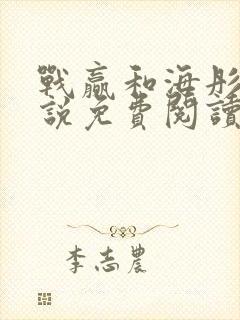 戰贏和海彤
說免費閱讀
李志農